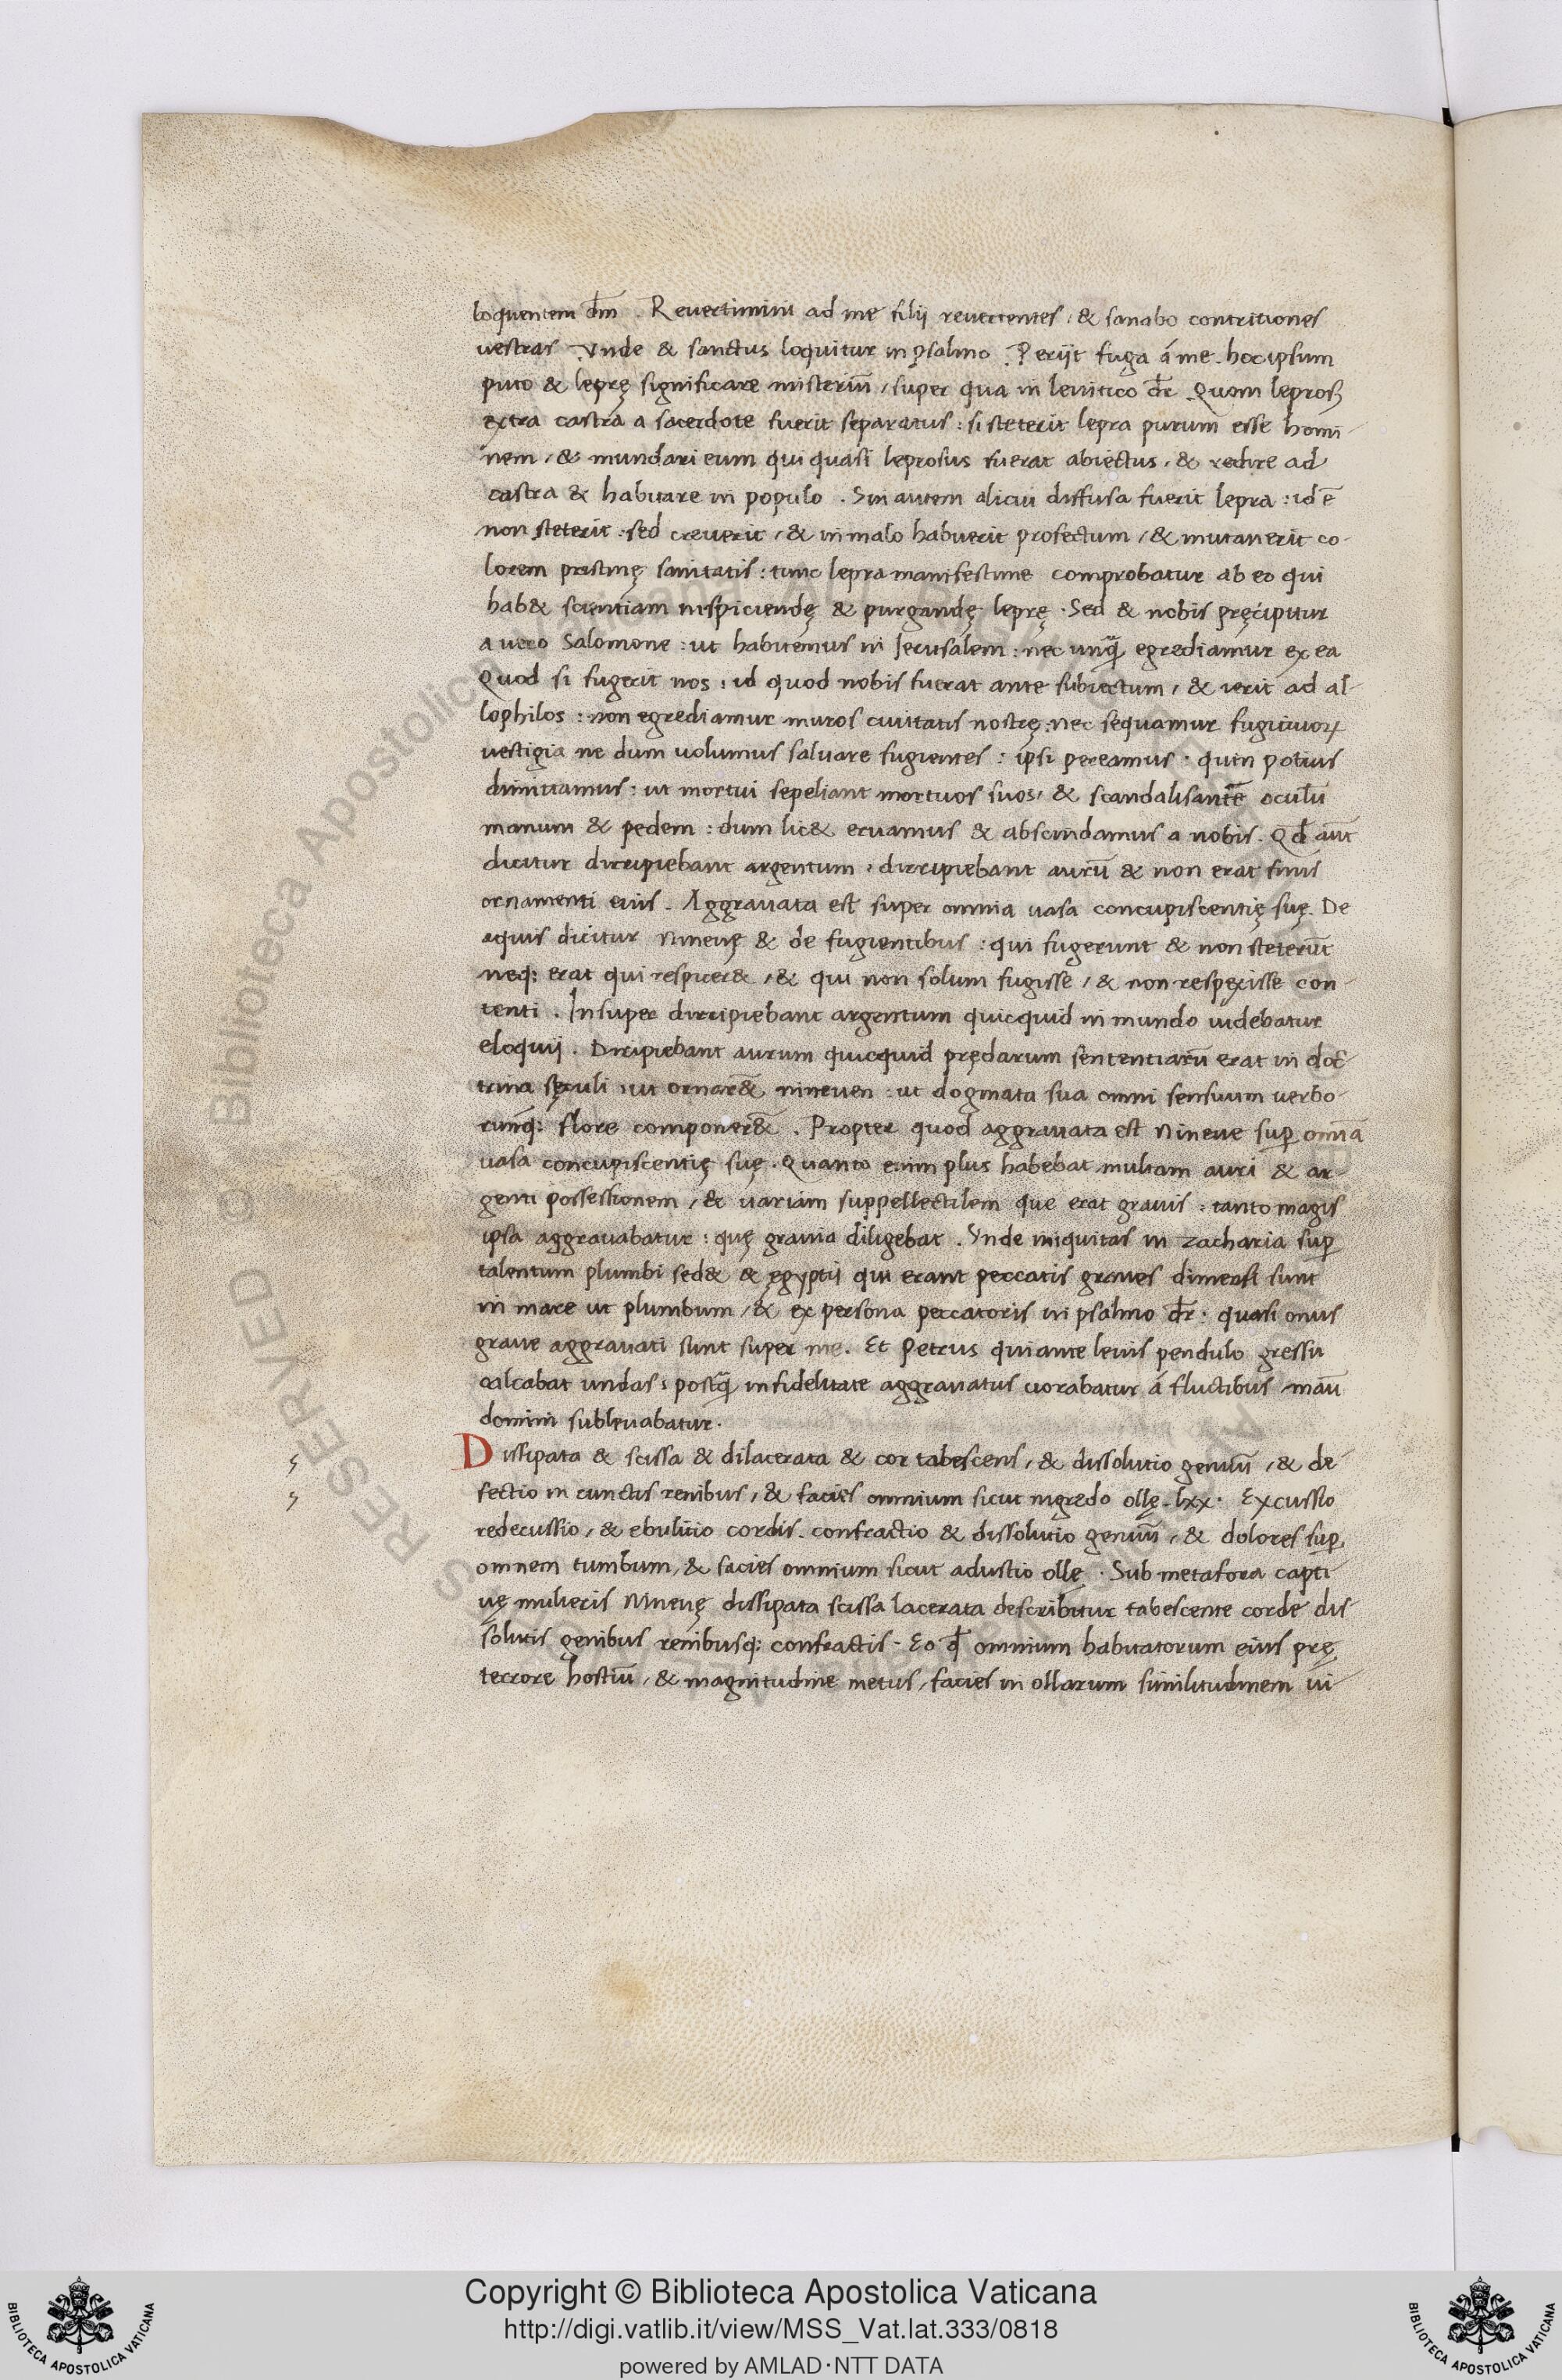 loquentem dm̄ . Revertimini ad me filij revertentes : & sanabo contritiones
vestras Vnde & sanctus loquitur in psalmo . Perijt fuga á me. hoc ipsum
puto & leprę significare misteriū / super qua in levitico dr̄ . Quom leprosꝫ
extra castra a sacerdote fuerit separatus : si steterit lepra purum esse homi-
nem / & mundari eum qui quasi leprosus fuerat abiectus / & redire ad
castra & habitare in populo . Sin autem alicui diffusa fuerit lepra : id ē
non steterit : sed creverit / & in malo habuerit profectum / & mutaverit co-
lorem pristinę sanitatis : tunc lepra manifestime comprobatur ab eo qui
hab& scientiam inspiciendę & purgandę leprę . Sed & nobis pręcipitur
a vero Salomone : ut habitemus in Jerusalem : nec unq̄ egrediamur ex ea
Quod si fugerit nos : id quod nobis fuerat ante subiectum / & ierit ad al-
lophilos : non egrediamur muros civitatis nostrę : nec sequamur fugitivoꝝ
vestigia ne dum volumus salvare fugientes : ipsi pereamus . quin potius
dimittamus : ut mortui sepeliant mortuos suos / & scandalisantē oculū
manum & pedem : dum lic& eruamus & abscindamus a nobis . Qd̄ aūt
dicitur dirripiebant argentum : dirripiebant aurū & non erat finis
ornamenti eius . Aggravata est super omnia vasa concupiscentię suę . De
aquis dicitur Ninevę & de fugientibus : qui fugerunt & non steterūt
neq: erat qui respicer& / & qui non solum fugisse / & non respexisse con-
tenti . Insuper dirripiebant argentum quicquid in mundo videbatur
eloquij . Diripiebant aurum quicquid prędarum sententiarū erat in doc-
trina sęculi : ut ornar& nineven : ut dogmata sua omni sensuum verbo-
rumq: flore componer& . Propter quod aggravata est Nineve suꝑ omīa
vasa concupiscentię suę . Quanto enim plus habebat multam auri & ar-
genti possessionem / & variam suppellectilem que erat gravis : tanto magis
ipsa aggravabatur : quę gravia diligebat . Vnde iniquitas in zacharia suꝑ
talentum plumbi sed& & ęgyptij qui erant peccatis graves dimersi sunt
in mare ut plumbum / & ex persona peccatoris in psalmo dr̄ : quasi onus
grave aggravati sunt super me . Et Petrus qui ante levis pendulo gressu
calcabat undas : postq̄ infidelitate aggravatus vorabatur á fluctibus / manū
domini sublevabatur .
Dissipata & scissa & dilacerata & cor tabescens / & dissolutio genuū / & de-
fectio in cunctis renibus / & facies omnium sicut nigredo ollę . lxx . Excussio
redecussio / & ebulitio cordis . confractio & dissolutio genuū / & dolores suꝑ
omnem lumbum / & facies omnium sicut adustio ollę . Sub metafora capti
vę mulieris Ninevę dissipata scissa lacerata describitur tabescente corde dis
solutis genibus renibusq: confractis . Eo qd̄ omnium habitatorum eius prę
terrore hostiū / & magnitudine metus / facies in ollarum similitudinem ni-
© Biblioteca Apostolica
RESERVED
Copyright © Biblioteca Apostolica Vaticana
http://digi.vatlib.it/view/MSS_Vat.lat.333/0818
powered by AMLAD·NTT DATA
BIBLIOTECA APOSTOLICA VATICANA
BIBLIOTECA APOSTOLICA VATICANA